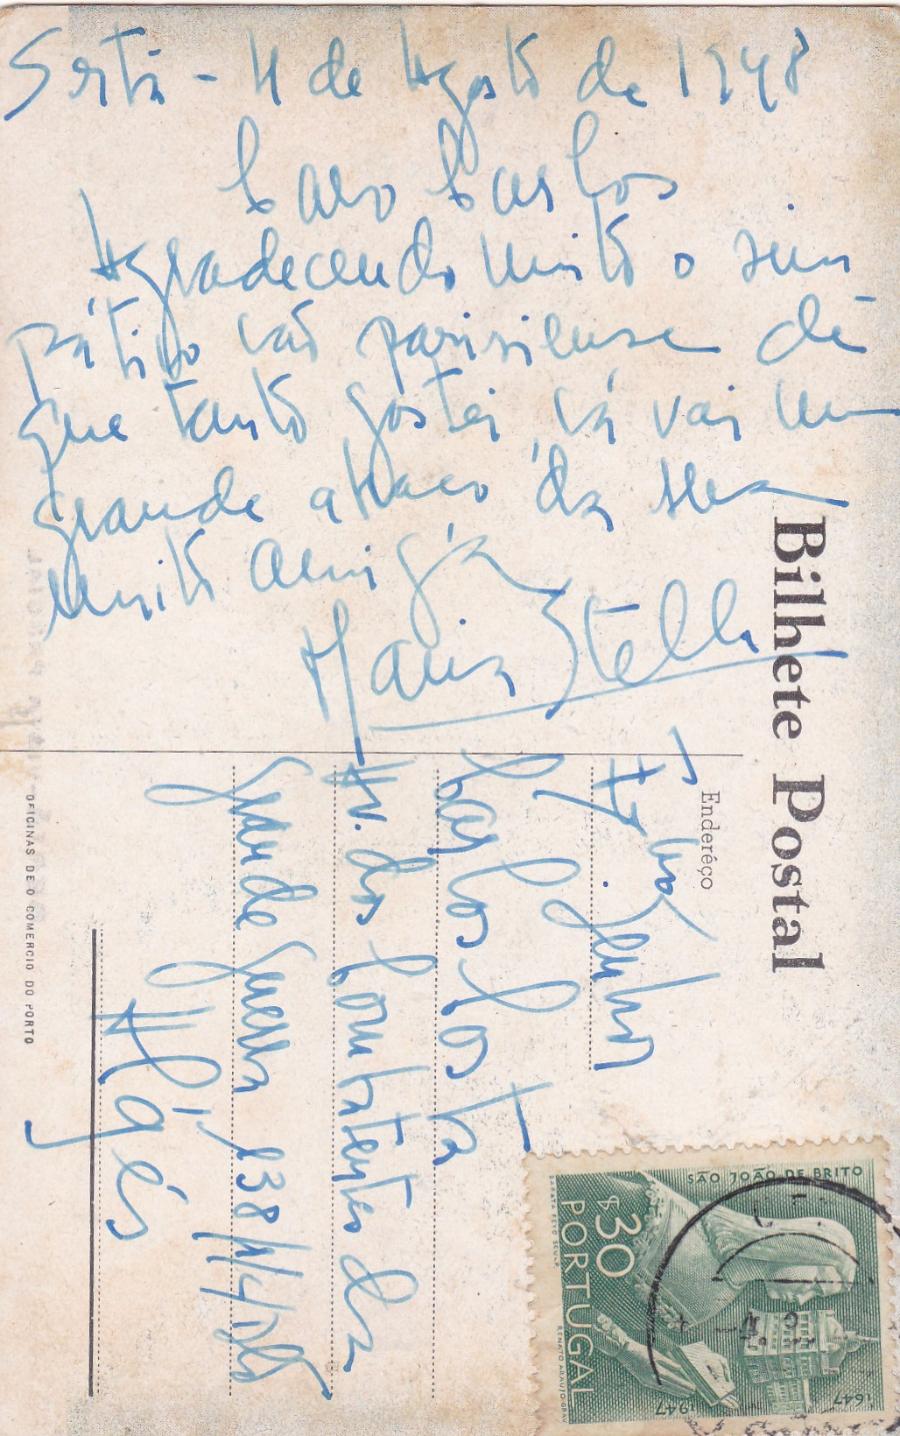 Sertã - 4 de Agosto de 1948
Caro Carlos
Agradecendo muito o sim
pático cão parisiense de
que tanto gostei, vá vai um
grande abraço da sua
muito amiga
Maria Stella
Bilhete Postal
Enderêço
Senhor
Carlos Costa
Av. dos Combatentes da
Grande Guerra 138
Algés
OFICINAS DE O COMERCIO DO PORTO
SÃO JOÃO DE BRITO
$30
PORTUGAL
1647
1947